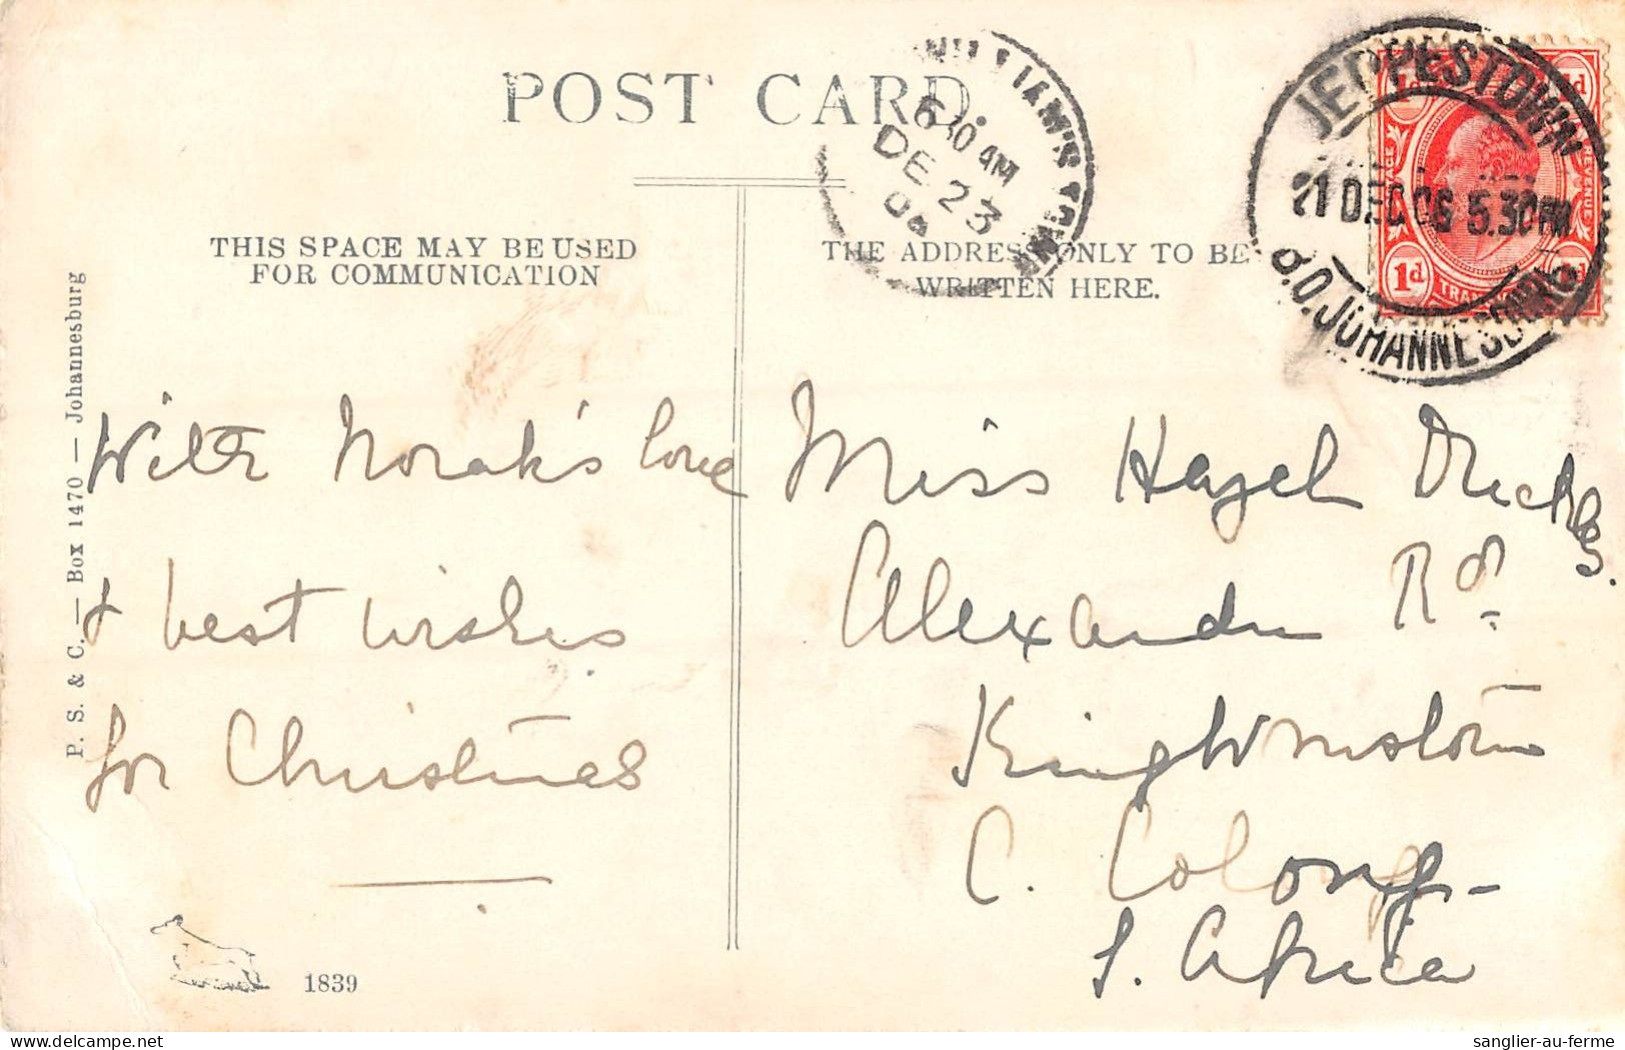 POST CARD.
THIS SPACE MAY BE USED
FOR COMMUNICATION
THE ADDRESS ONLY TO BE
WRITTEN HERE.
P. S. & C. — Box 1470 — Johannesburg
6 30 AM
DE 23
06
JEPPESTOWN
21 DEC 06 5.30PM
JOHANNESBURG
1d
REVENUE
With Norah's love
& best wishes
for Christmas
Miss Hazel
Alexandra Rd
KingWmstown
C. Colony
S. Africa
1839
sanglier-au-ferme